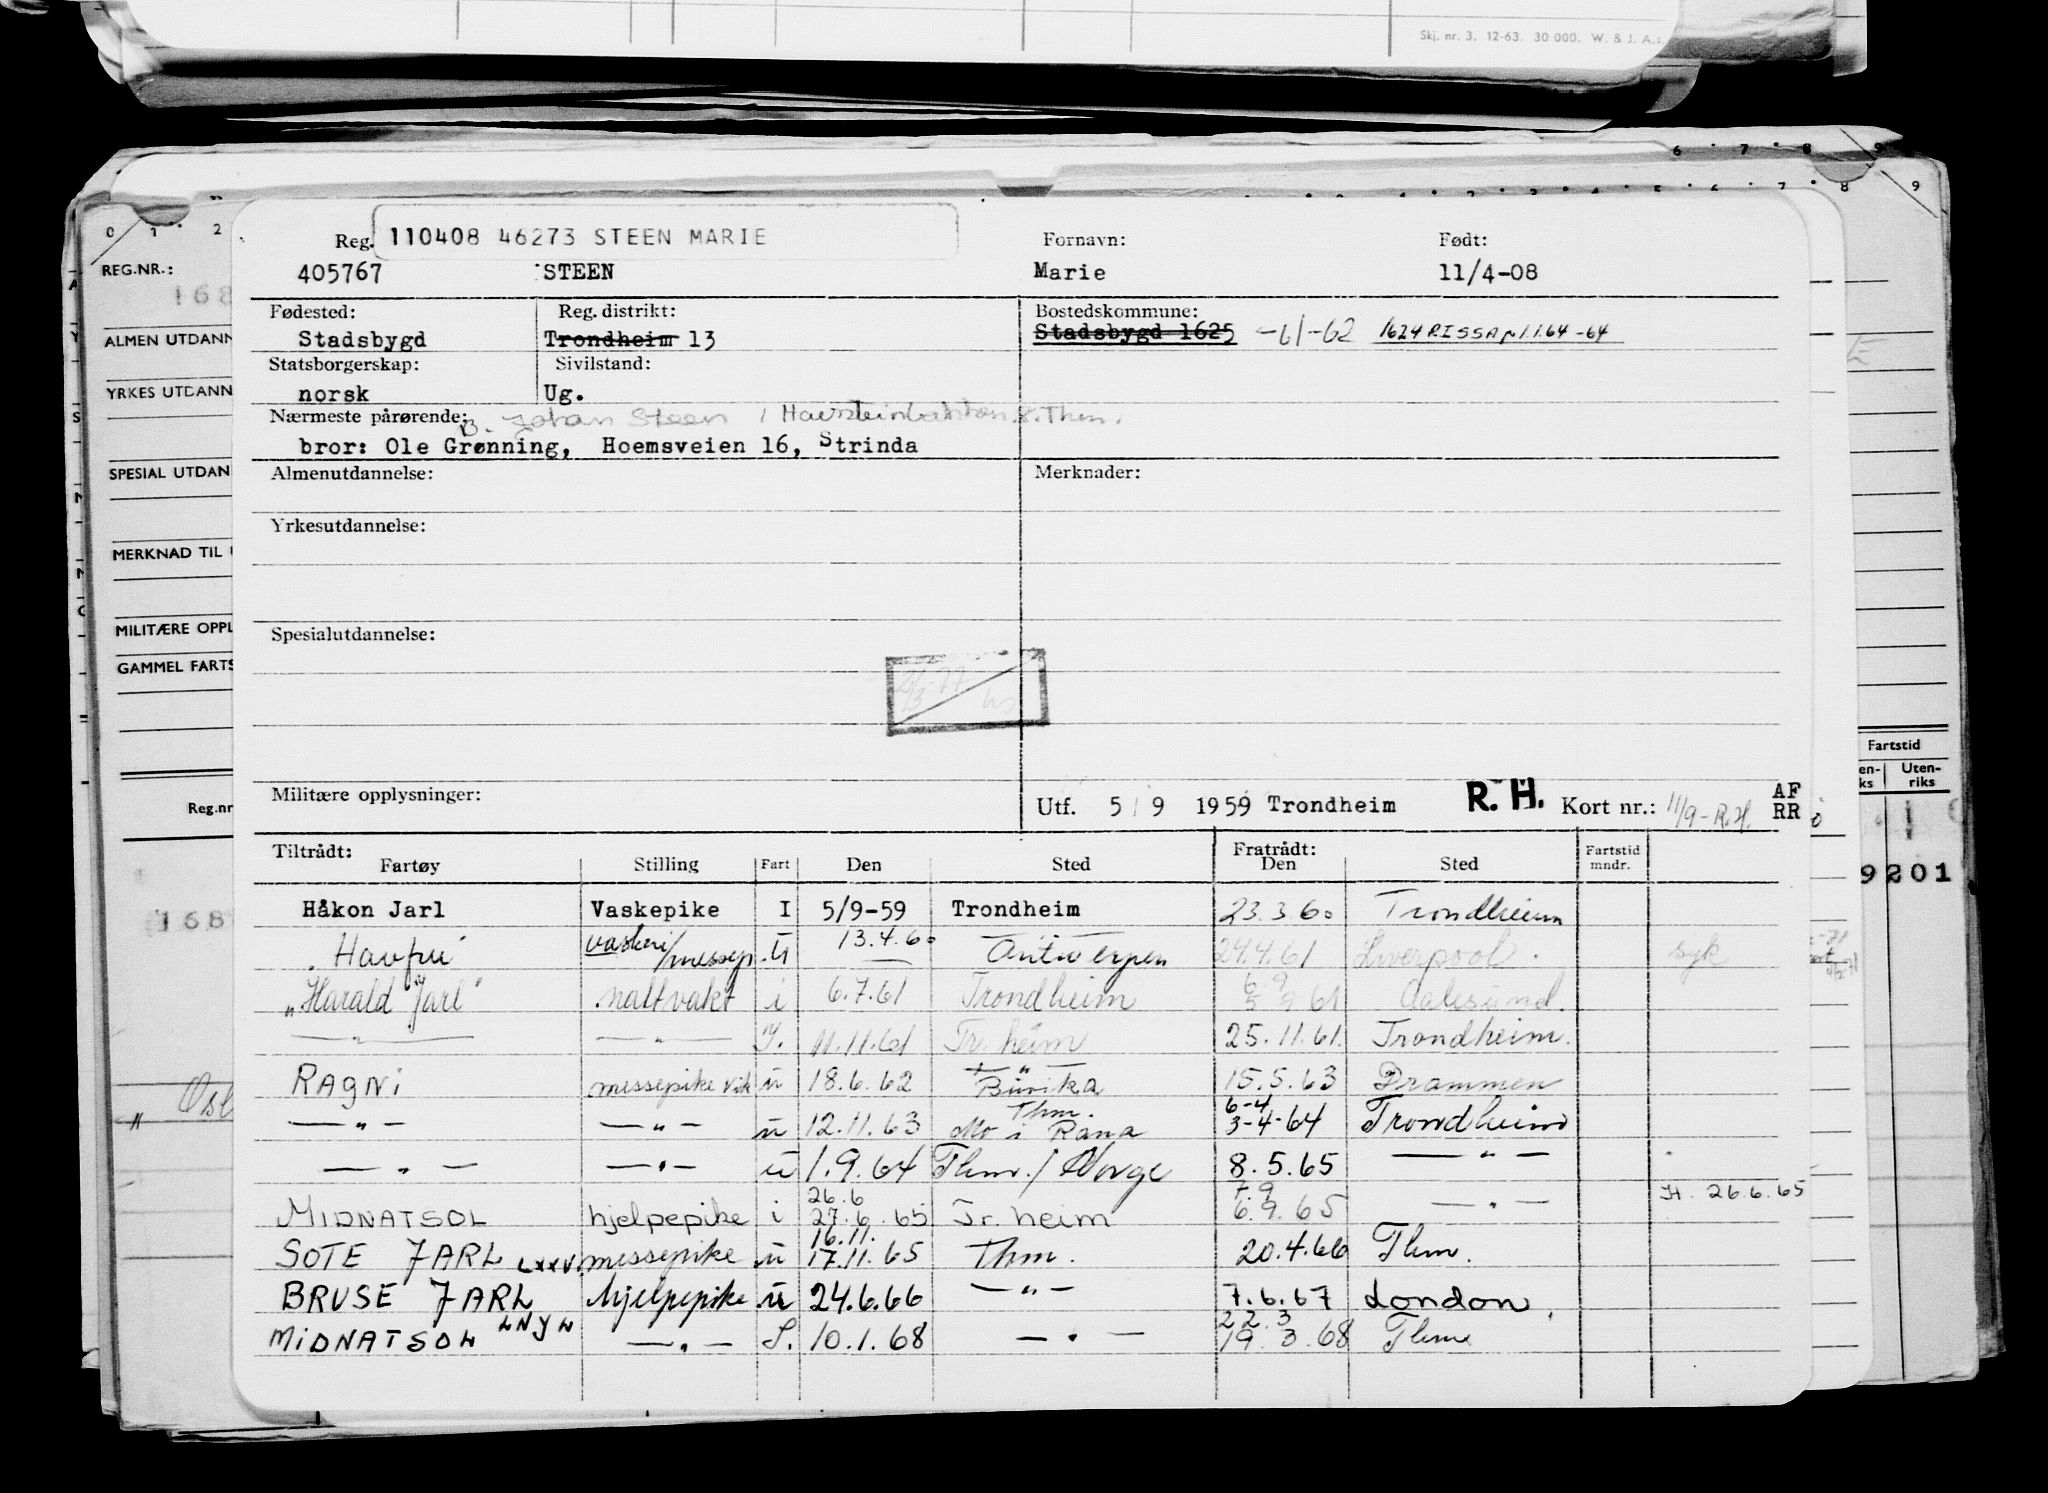 Skj. nr. 3. 12-63. 30 000. W. & J. A.s.
6 7 8 9
0 1 2
7 8 9
REG.NR.:
168
ALMEN UTDANN
YRKES UTDANN
SPESIAL UTDAN
MERKNAD TIL
MILITÆRE OPPL
GAMMEL FARTS
Reg.nr
168
Fartstid
Uten-
riks
9201
Reg. 110408 46273 STEEN MARIE Fornavn: Født:
405767 STEEN Marie 11/4-08
Fødested: Reg. distrikt: Bostedskommune:
Stadsbygd Trondheim 13 Stadsbygd 1625 -61-62 1624 RISSA 1.1.64-64
Statsborgerskap: Sivilstand:
norsk Ug.
Nærmeste pårørende: B. Johan Steen, 8. Thm.
bror: Ole Grønning, Hoemsveien 16, Strinda
Almenutdannelse: Merknader:
Yrkesutdannelse:
Spesialutdannelse:
Militære opplysninger: Utf. 5/9 1959 Trondheim R.H. Kort nr.: 11/9-R.H. AF
RR
Tiltrådt: Fratrådt: Fartstid
Fartøy Stilling Fart Den Sted Den Sted mndr.
Håkon Jarl Vaskepike I 5/9-59 Trondheim 23.3.60 Trondheim
"Havfru" vaskeri/messep. ü 13.4.60 Antwerpen 24.4.61 Liverpool. syk
"Harald Jarl" nattvakt i 6.7.61 Trondheim 6-9 5 9 61 Aalesund.
— " — — " — I. 11.11.61 Tr.heim 25.11.61. Trondheim.
RAGNi messepike vik ü 18.6.62 15.5.63 Drammen
— " — — " — ü 12.11.63 Thm. Mo i Rana 6-4 3-4-64 Trondheim
— " — — " — ü 1.9.64 Thm./Norge 8.5.65 — " —
MIDNATSOL hjelpepike i 26.6 27.6.65 Tr.heim 7.9 6.9.65 — " — H. 26.6.65
SOTE JARL LXXV messepike ü 16.11. 17.11.65 Thm. 20.4.66 Thm.
BRUSE JARL hjelpepike ü 24.6.66 — " — 7.6.67 London.
MiDNATSOL LNJW — " — I. 10.1.68 — " — 22.3 19.3.68 Thm